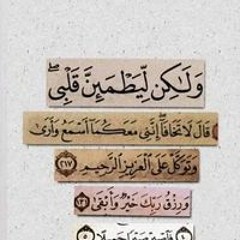 وَلَـٰكِن لِّيَطْمَئِنَّ قَلْبِى ۖ
قَالَ لَا تَخَافَآ ۖ إِنَّنِى مَعَكُمَآ أَسْمَعُ وَأَرَىٰ
وَتَوَكَّلْ عَلَى ٱلْعَزِيزِ ٱلرَّحِيمِ ٢١٧
وَرِزْقُ رَبِّكَ خَيْرٌ وَأَبْقَىٰ ١٣١
فَٱصْبِرْ صَبْرًا جَمِيلًا ٥